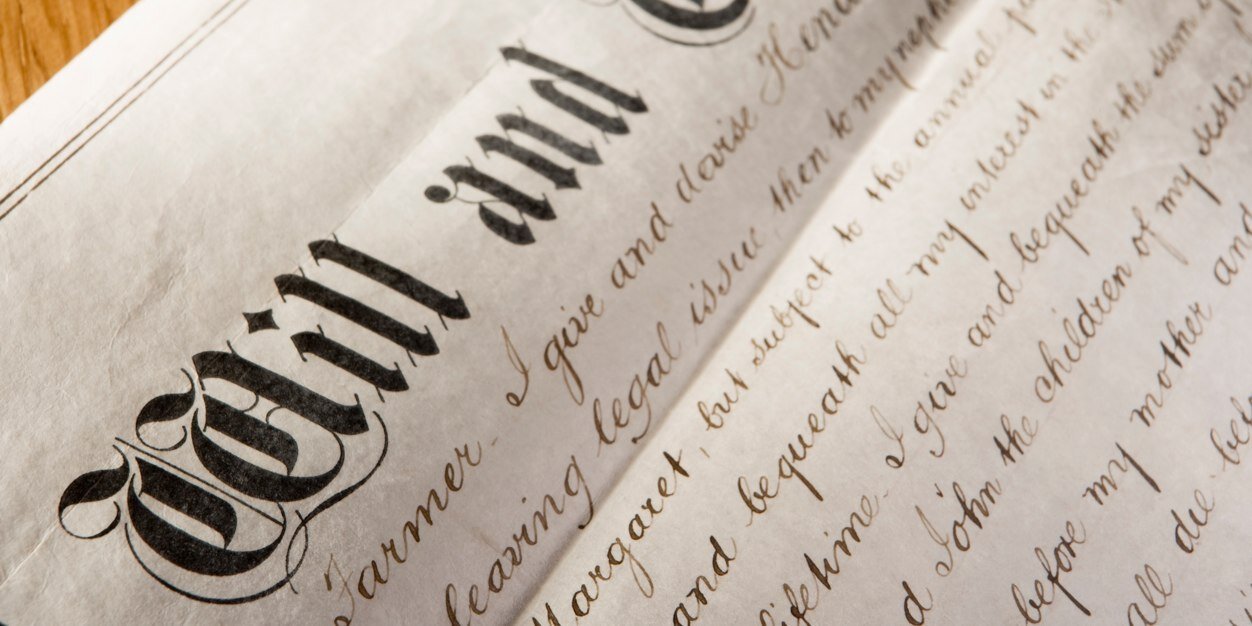 Will and
Farmer - I give and devise
leaving legal issue then to my
Margaret, but subject to the annual
and bequeath all my interest in the
lifetime - I give and bequeath the sum
d John the children of my sister
before my mother and
all die